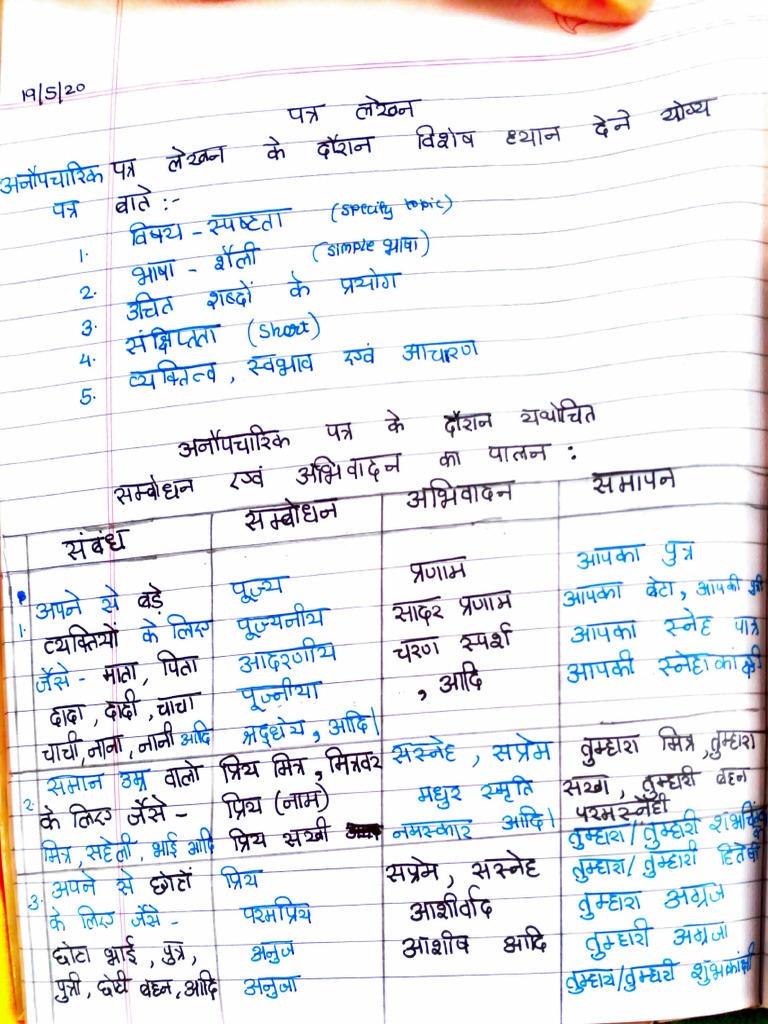 19/5/20
पत्र लेखन
अनौपचारिक पत्र लेखन के दौरान विशेष ध्यान देने योग्य
पत्र बाते :-
1. विषय - स्पष्टता (specify topic)
2. भाषा - शैली (simple भाषा)
3. उचित शब्दों के प्रयोग
4. संक्षिप्तता (short)
5. व्यक्तित्व, स्वभाव एवं आचारण
अनौपचारिक पत्र के दौरान यथोचित
सम्बोधन एवं अभिवादन का पालन :
संबंध सम्बोधन अभिवादन समापन
1. अपने से बड़े पूज्य प्रणाम आपका पुत्र
व्यक्तियों के लिए पूज्यनीय सादर प्रणाम आपका बेटा, आपकी
जैसे - माता, पिता आदरणीय चरण स्पर्श आपका स्नेह पात्र
दादा, दादी, चाचा पूज्नीया , आदि आपकी स्नेहाकांक्षी
चाची, नाना, नानी आदि श्रद्धेय, आदि।
2. समान उम्र वालो प्रिय मित्र, मित्रवर सस्नेह, सप्रेम तुम्हारा मित्र, तुम्हारा
के लिए जैसे - प्रिय (नाम) मधुर स्मृति सखा, तुम्हारी बहन
मित्र, सहेली, भाई आदि प्रिय सखी नमस्कार आदि। परमस्नेही
तुम्हारा/तुम्हारी
3. अपने से छोटों प्रिय सप्रेम, सस्नेह तुम्हारा/तुम्हारी हितैषी
के लिए जैसे - परमप्रिय आशीर्वाद तुम्हारा अग्रज
छोटा भाई, पुत्र, अनुज आशीष आदि तुम्हारी अग्रजा
पुत्री, छोटी बहन, आदि अनुजा तुम्हारा/तुम्हारी शुभकांक्षी